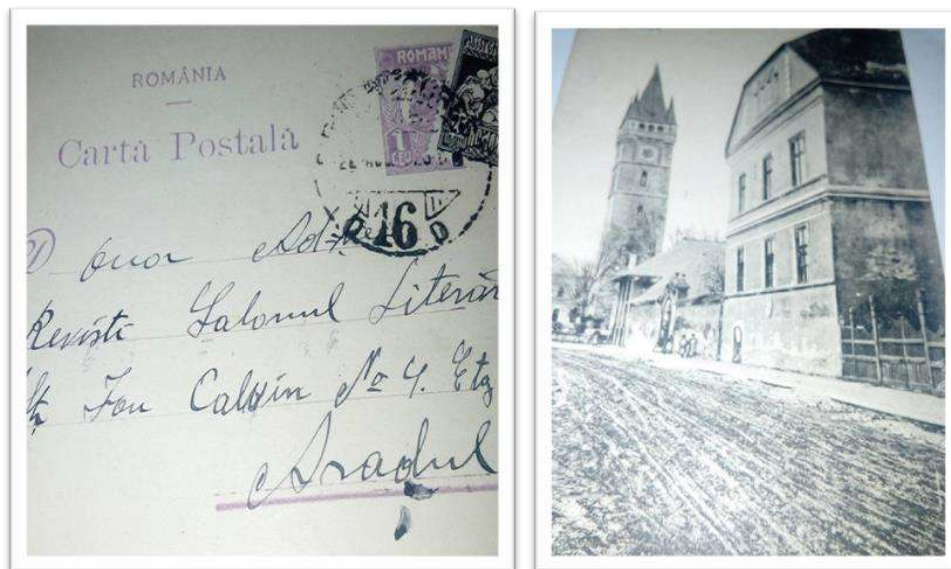 ROMÂNIA
Carta Postală
ROMAN
1
LEU
16
Onor
Reviste Salonul Literar
Ion Calvin No 4. Etaj
Aradul